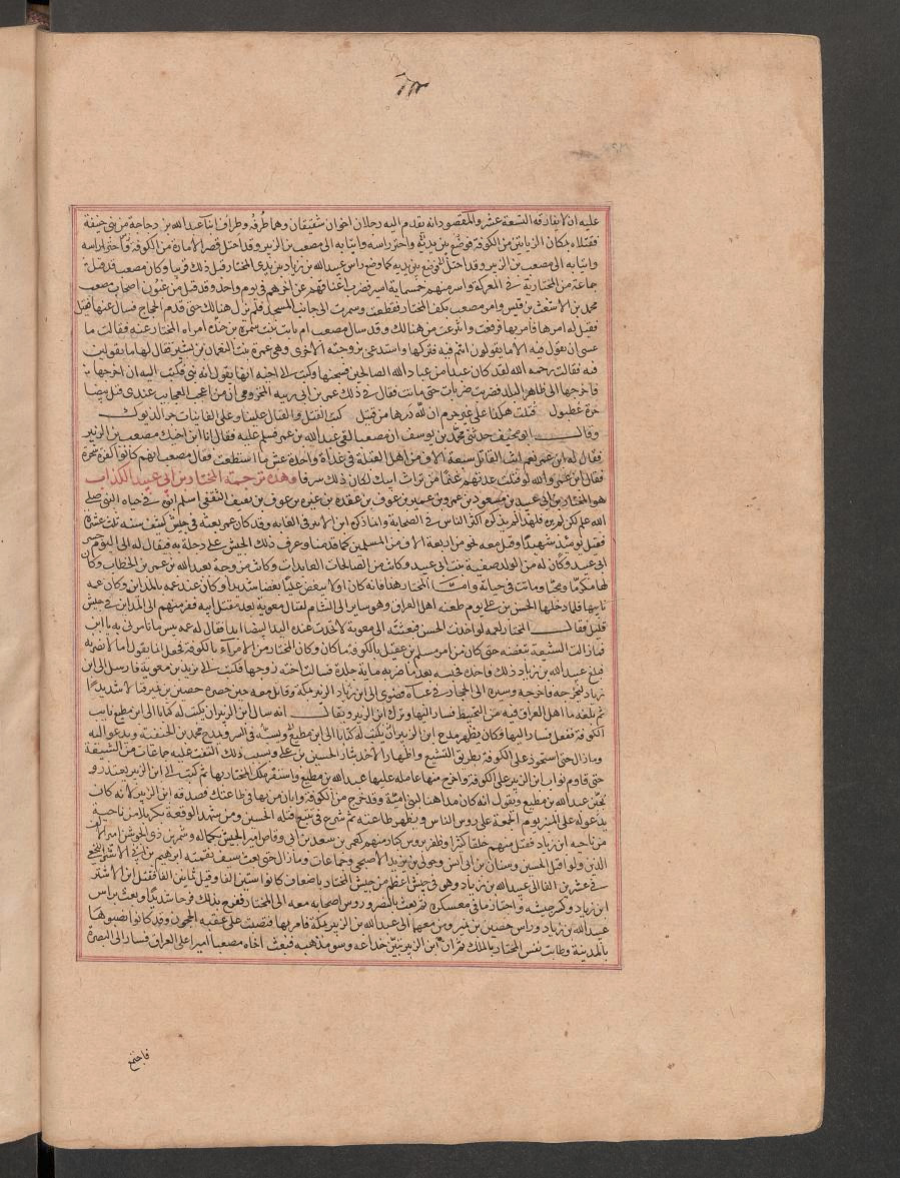 عليه ان لا يفارقه التسعة عشر والمقصود انه تقدم اليه رجلان اخوان شقيقان وهما طرفة وطراف ابنا عبد الله بن دجاجة من بني حنيفة
فقتلاه بمكان الزياتين من الكوفة فوضع بين يديه واحتز راسه واتيا به الى مصعب بن الزبير وقد دخل قصر الامارة من الكوفة
واتيا به الى مصعب بن الزبير وقد دخل القصر فوضع بين يديه كما وضع راس عبيد الله بن زياد بين يدى المختار قبل ذلك قريبا وكان مصعب قد قتل
جماعة من المختارية في المعركة واسر منهم خمسماية اسير فضرب اعناقهم عن اخرهم في يوم واحد وقد قتل من عيون اصحاب مصعب
محمد بن الاشعث بن قيس وامر مصعب بكف المختار فقطعت وسمرت الى جانب المسجد فلم يزل هنالك حتى قدم الحجاج فسال عنها فقيل
فقيل له امرها فامر بها فرفعت وانتزعت من هنالك وقد سال مصعب ام ثابت بنت سمرة بن جندب امراه المختار عنه فقالت ما
عسى ان نقول فيه الا ما يقولون انتم فيه فتركها واستدعى بزوجته الاخرى وهي عمرة بنت النعمان بن بشير فقال لها ما تقولين
فيه فقالت رحمه الله لقد كان عبدا من عباد الله الصالحين فسجنها وكتب لاخيه انها تقول انه نبي فكتب اليه ان اخرجها
فاخرجها الى ظاهر البلد فضربت ضربات حتى ماتت فقال في ذلك عمر بن ابي ربيعة المخزومي ان من اعجب العجايب عندى قتل بيضا
حرة عطبول قتلت هكذا على غير جرم ان لله درها من قتيل كتب القتل والقتال علينا وعلى الغانيات جر الذيول
وقال ابو مخنف حدثني محمد بن يوسف ان مصعبا لقي عبد الله بن عمر فسلم عليه فقال انا ابن اخيك مصعب بن الزبير
فقال له ابن عمر نعم انت القاتل سبعة الاف من اهل القبلة في غداة واحدة عش ما استطعت فقال مصعب انهم كانوا كفرة سحرة
فقال ابن عمر والله لو قتلت عدتهم غنما من تراث ابيك لكان ذلك سرفا وهذه ترجمة المختار بن ابي عبيد الكذاب
هو المختار بن ابي عبيد بن مسعود بن عمرو بن عمير بن عوف بن عقدة بن غيرة بن عوف بن ثقيف الثقفي اسلم ابوه في حياة النبي صلى
الله عليه لكن لم يره فلهذا لم يذكره اكثر الناس في الصحابة وانما ذكره ابن الاثير في الغابه وقد كان عمر بعثه في جيش كثيف سنه ثلث عشرة
فقتل يومئذ شهيدا وقتل معه نحو من اربعة الاف من المسلمين كما قدمنا وعرف ذلك الجيش على دجلة به فيقال له الى اليوم جسر
ابي عبيد وكان له من الولد صفية بنت ابي عبيد وكانت من الصالحات العابدات وكانت زوجة لعبد الله بن عمر بن الخطاب وكان
لها مكرما ومحبا وماتت في حياته واما المختار هذا فانه كان اولا يبغض عليا بغضا شديدا وكان عند عمه بالمداين وكان عمه
نايبها فلما دخلها الحسن بن علي يوم طعنه اهل العراق وهو ساير الى الشام لقتال معوية بعد مقتل ابيه ففر منهم الى المداين في جيش
قليل فقال المختار لعمه لو اخذت الحسن فبعثته الى معوية لاتخذت عنده اليد البيضا ابدا فقال له عمه بيس ما تامرني به يا ابن
فما زالت الشيعة تبغضه حتى كان من امر مسلم بن عقيل بالكوفة ما كان وكان المختار من الامرآء بالكوفة فجعل يقول اما لانصرنه
فبلغ عبيد الله بن زياد ذلك فاخذه فحبسه بعد ما ضربه ماية جلدة فسالت اخته زوجها فكتب الى يزيد بن معوية فارسل الى ابن
زياد ليخرجه فاخرجه وسيره الى الحجاز في عباة فضوى الى ابن الزبير بمكة وقاتل معه حين حصره حصين بن نمير قتالا شديدا
ثم بلغه ما اهل العراق فيه من التخبيط فسار اليها وترك ابن الزبير ويقال انه سال ابن الزبير ان يكتب له كتابا الى ابن مطيع نايب
الكوفة ففعل فسار اليها وكان يظهر مدح ابن الزبير ويسبه في السر ويمدح محمد بن الحنفية ويدعو اليه
وما زال حتى استحوذ على الكوفة بطريق التشيع واظهار الاخذ بثار الحسين بن علي وبسبب ذلك التفت عليه جماعات من الشيعة
حتى قاوم نواب ابن الزبير على الكوفة واخرج منها عامله عليها عبد الله بن مطيع واستقر ملك المختار بها ثم كتب الى ابن الزبير يعتذر و
يخبر عبد الله بن مطيع ويقول انه كان مداهنا لبني امية وقد خرج من الكوفة وانا ومن بها في طاعتك فصدقه ابن الزبير لانه كان
يدعو له على المنبر يوم الجمعة على روس الناس ويظهر طاعته ثم شرع في تتبع قتلة الحسين ومن شهد الوقعة بكربلا من ناحية
من ناحية ابن زياد فقتل منهم خلقا كثيرا وظفر بروس كبار منهم كعمر بن سعد بن ابي وقاص امير الجيش بكماله وشمر بن ذي الجوشن امير الالف
الذين ولوا قتل الحسين وسنان بن ابي انس وخولي بن يزيد الاصبحي وجماعات وما زال حتى بعث سيف نقمته ابرهيم بن الاشتر النخعي
في عشرين الفا الى عبيد الله بن زياد وهو في جيش اعظم من جيش المختار باضعاف كانوا ستين الفا وقيل ثمانين الفا فقتل ابن الاشتر
ابن زياد وكسر جيشه واحتاز ما في معسكره ثم بعث بالنصر وروس اصحابه معه الى المختار ففرح بذلك فرحا شديدا وبعث براس
عبيد الله بن زياد وراس حصين بن نمير ومن معهما الى عبد الله بن الزبير بمكة فامر بها فنصبت على عقبة الحجون وقد كانوا نصبوها
بالمدينة وطابت نفس المختار بالملك فراى ابن الزبير تبين خداعه وسو مذهبه فبعث اخاه مصعبا اميرا على العراق فسار الى البصرة
فاجتمع